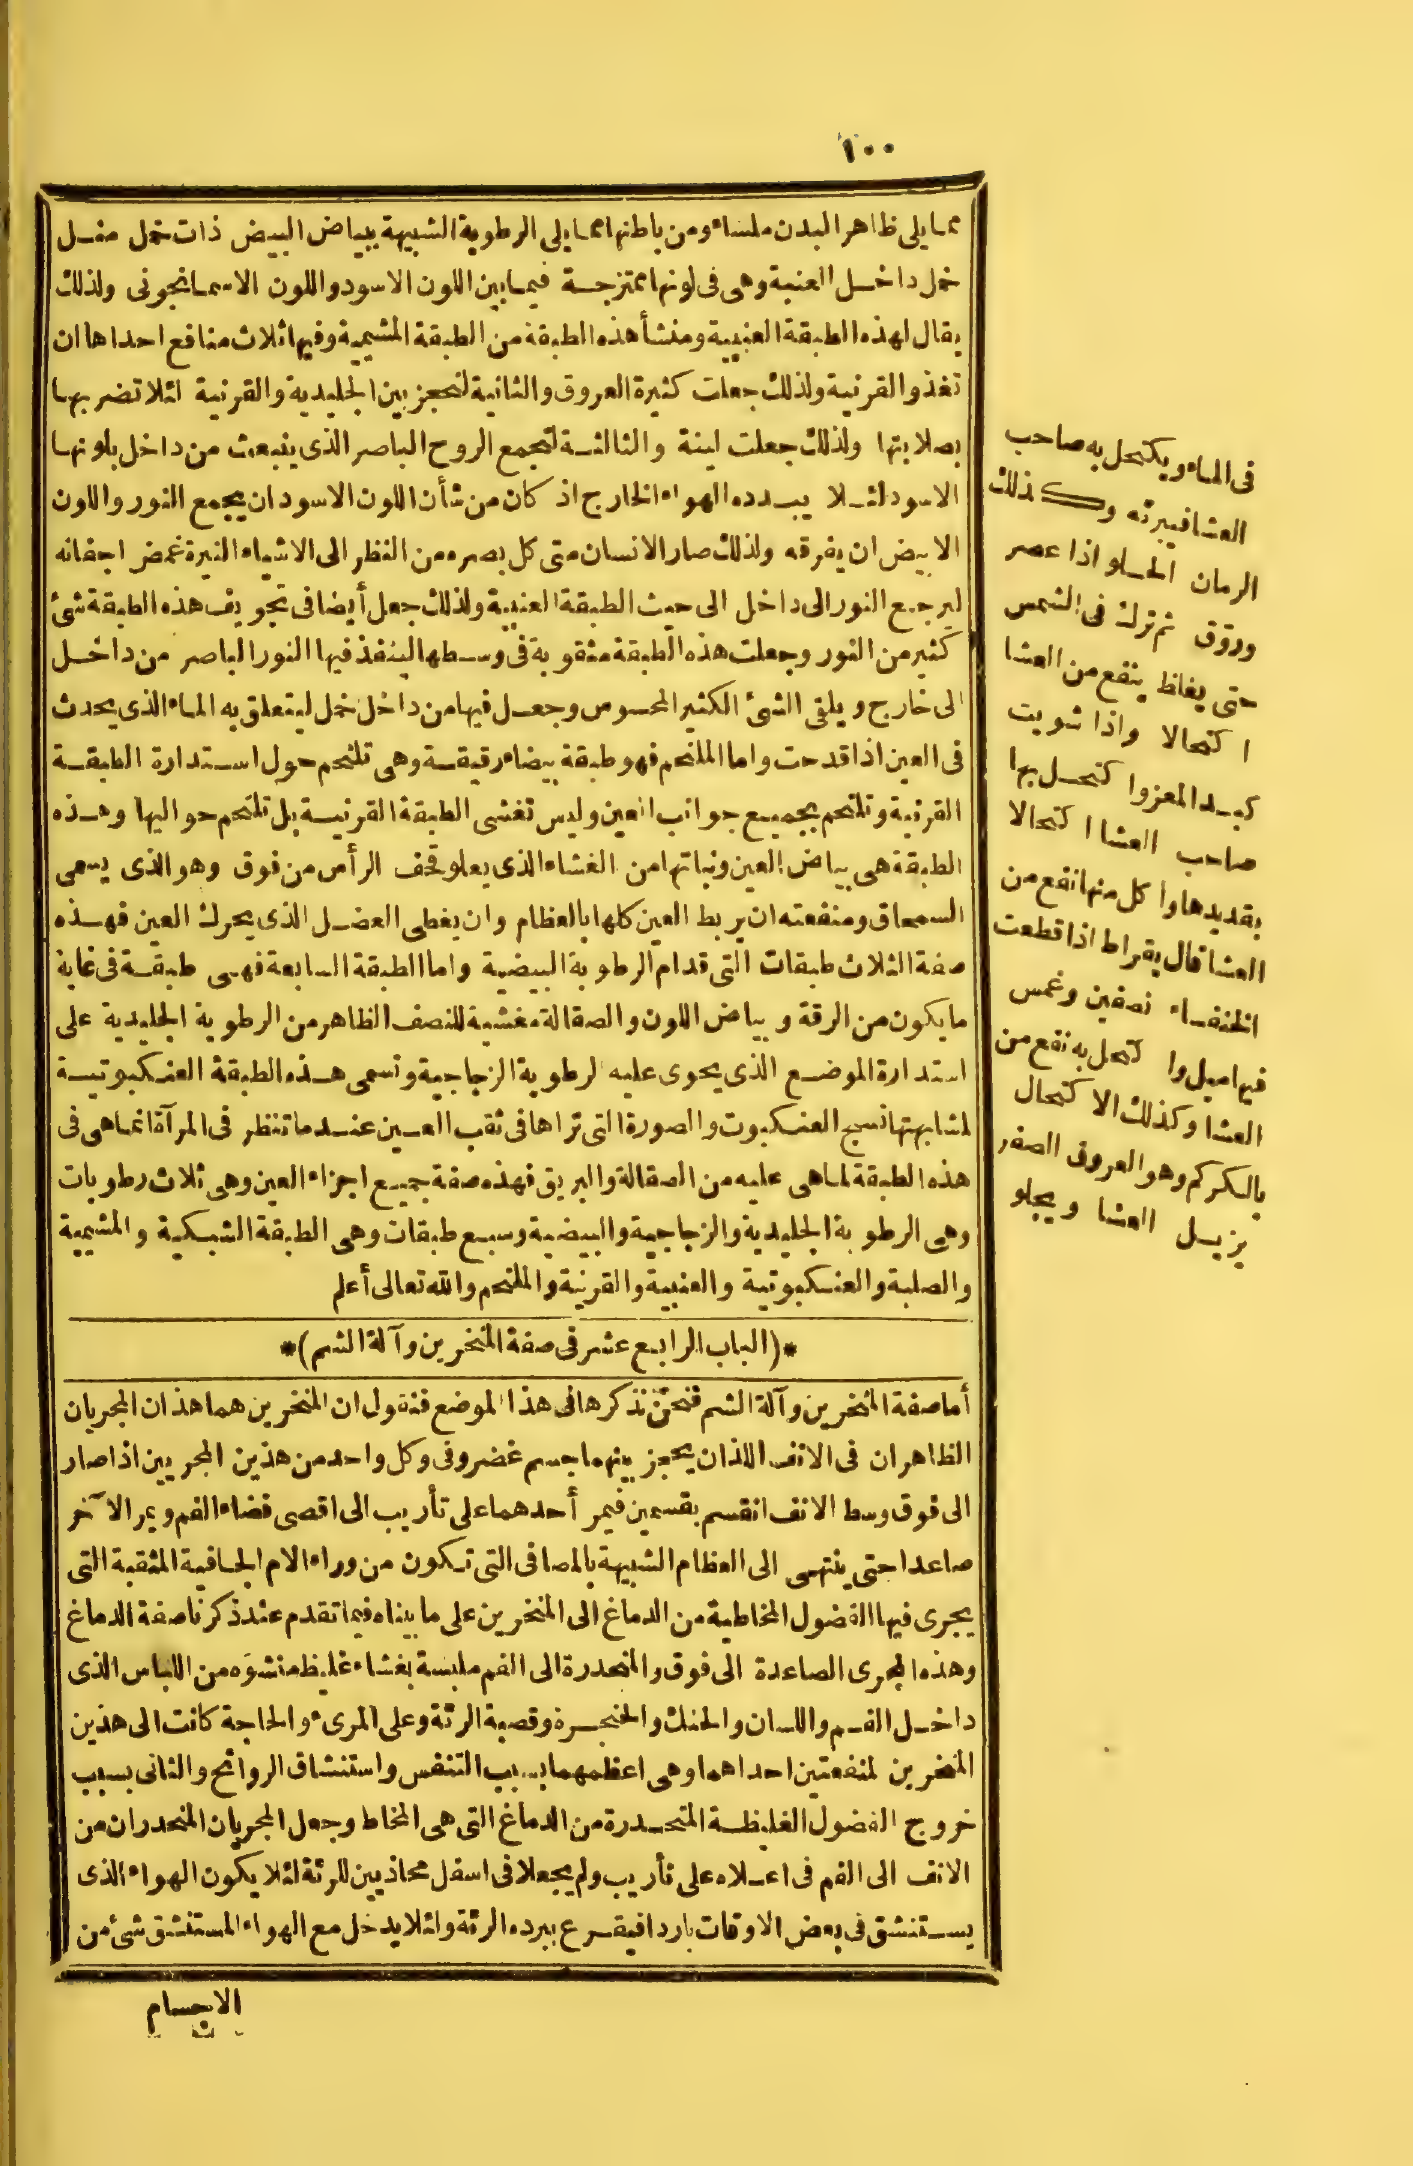 ١٠٠
مما يلى ظاهر البدن ملساء ومن باطنها مما يلى الرطوبة الشبيهة ببياض البيض ذات خمل مثل
خمل داخل العنبة وهى فى لونها ممتزجة فيما بين اللون الاسود واللون الاسمانجونى ولذلك
يقال لهذه الطبقة العنبية ومنشأ هذه الطبقة من الطبقة المشيمية وفيها ثلاث منافع احداها ان
تغذو القرنية ولذلك جعلت كثيرة العروق والثانية لتحجز بين الجليدية والقرنية لئلا تضر بها
بصلابتها ولذلك جعلت لينة والثالثة لتجمع الروح الباصر الذى ينبعث من داخل بلونها
الاسود لئلا يبدده الهواء الخارج اذ كان من شأن اللون الاسود ان يجمع النور واللون
الابيض ان يفرقه ولذلك صار الانسان متى كل بصره من النظر الى الاشياء النيرة غمض اجفانه
ليرجع النور الى داخل الى حيث الطبقة العنبية ولذلك جعل أيضا فى تجويف هذه الطبقة شئ
كثير من النور وجعلت هذه الطبقة مثقوبة فى وسطها لينفذ فيها النور الباصر من داخل
الى خارج ويلقى الشئ الكثير المحسوس وجعل فيها من داخل خمل ليتعلق به الماء الذى يحدث
فى العين اذا قدحت واما الملتحم فهو طبقة بيضاء رقيقة وهى تلتحم حول استدارة الطبقة
القرنية وتلتحم بجميع جوانب العين وليس تغشى الطبقة القرنية بل تلتحم حواليها وهذه
الطبقة هى بياض العين ونباتها من الغشاء الذى يعلو قحف الرأس من فوق وهو الذى يسمى
السمحاق ومنفعته ان يربط العين كلها بالعظام وان يغطى العضل الذى يحرك العين فهذه
صفة الثلاث طبقات التى قدام الرطوبة البيضية واما الطبقة السابعة فهى طبقة فى غاية
ما يكون من الرقة وبياض اللون والصقالة مغشية للنصف الظاهر من الرطوبة الجليدية على
استدارة الموضع الذى يحوى عليه الرطوبة الزجاجية وتسمى هذه الطبقة العنكبوتية
لمشابهتها نسج العنكبوت والصورة التى تراها فى ثقب العين عند ما تنظر فى المرآة انما هى فى
هذه الطبقة لما هى عليه من الصقالة والبريق فهذه صفة جميع اجزاء العين وهى ثلاث رطوبات
وهى الرطوبة الجليدية والزجاجية والبيضية وسبع طبقات وهى الطبقة الشبكية والمشيمية
والصلبة والعنكبوتية والعنبية والقرنية والملتحم والله تعالى أعلم
*(الباب الرابع عشر فى صفة المنخرين وآلة الشم)*
أما صفة المنخرين وآلة الشم فنحن نذكرها فى هذا الموضع فنقول ان المنخرين هما هذان المجريان
الظاهران فى الانف اللذان يحجز بينهما جسم غضروفى وكل واحد من هذين المجريين اذا صار
الى فوق وسط الانف انقسم بقسمين فيمر أحدهما على تأريب الى اقصى فضاء الفم ويمر الآخر
صاعدا حتى ينتهى الى العظام الشبيهة بالمصافى التى تكون من وراء الام الجافية المثقبة التى
يجرى فيها الفضول المخاطية من الدماغ الى المنخرين على ما بيناه فيما تقدم عند ذكرنا صفة الدماغ
وهذه المجرى الصاعدة الى فوق والمنحدرة الى الفم ملبسة بغشاء غليظ منشؤه من اللباس الذى
داخل الفم واللسان والحنك والحنجرة وقصبة الرئة وعلى المرىء والحاجة كانت الى هذين
المنخرين لمنفعتين احداهما وهى اعظمهما بسبب التنفس واستنشاق الروائح والثانى بسبب
خروج الفضول الغليظة المتحدرة من الدماغ التى هى المخاط وجعل المجريان المنحدران من
الانف الى الفم فى اعلاه على تأريب ولم يجعلا فى اسفل محاذيين للرئة لئلا يكون الهواء الذى
يستنشق فى بعض الاوقات باردا فيقرع ببرده الرئة ولئلا يدخل مع الهواء المستنشق شئ من
الاجسام
فى الماء ويكتحل به صاحب
العشا فيبرئه وكذلك
الرمان الحلو اذا عصر
وروق ثم ترك فى الشمس
حتى يغلظ ينفع من العشا
اكتحالا واذا شويت
كبد المعز واكتحل بها
صاحب العشا اكتحالا
بقديدها واكل منها نفع من
العشا قال بقراط اذا قطعت
الخنفساء نصفين وغمس
فيها ميل واكتحل به نفع من
العشا وكذلك الاكتحال
بالكركم وهو العروق الصفر
يزيل العشا ويجلو